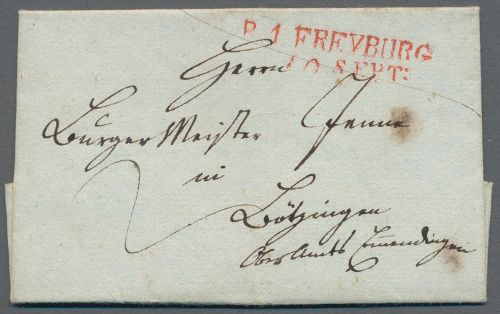 R.1.FREYBURG
10 SEPT:
Herrn
BurgerMeister Jenne
in
Bötzingen
OberAmts Emendingen